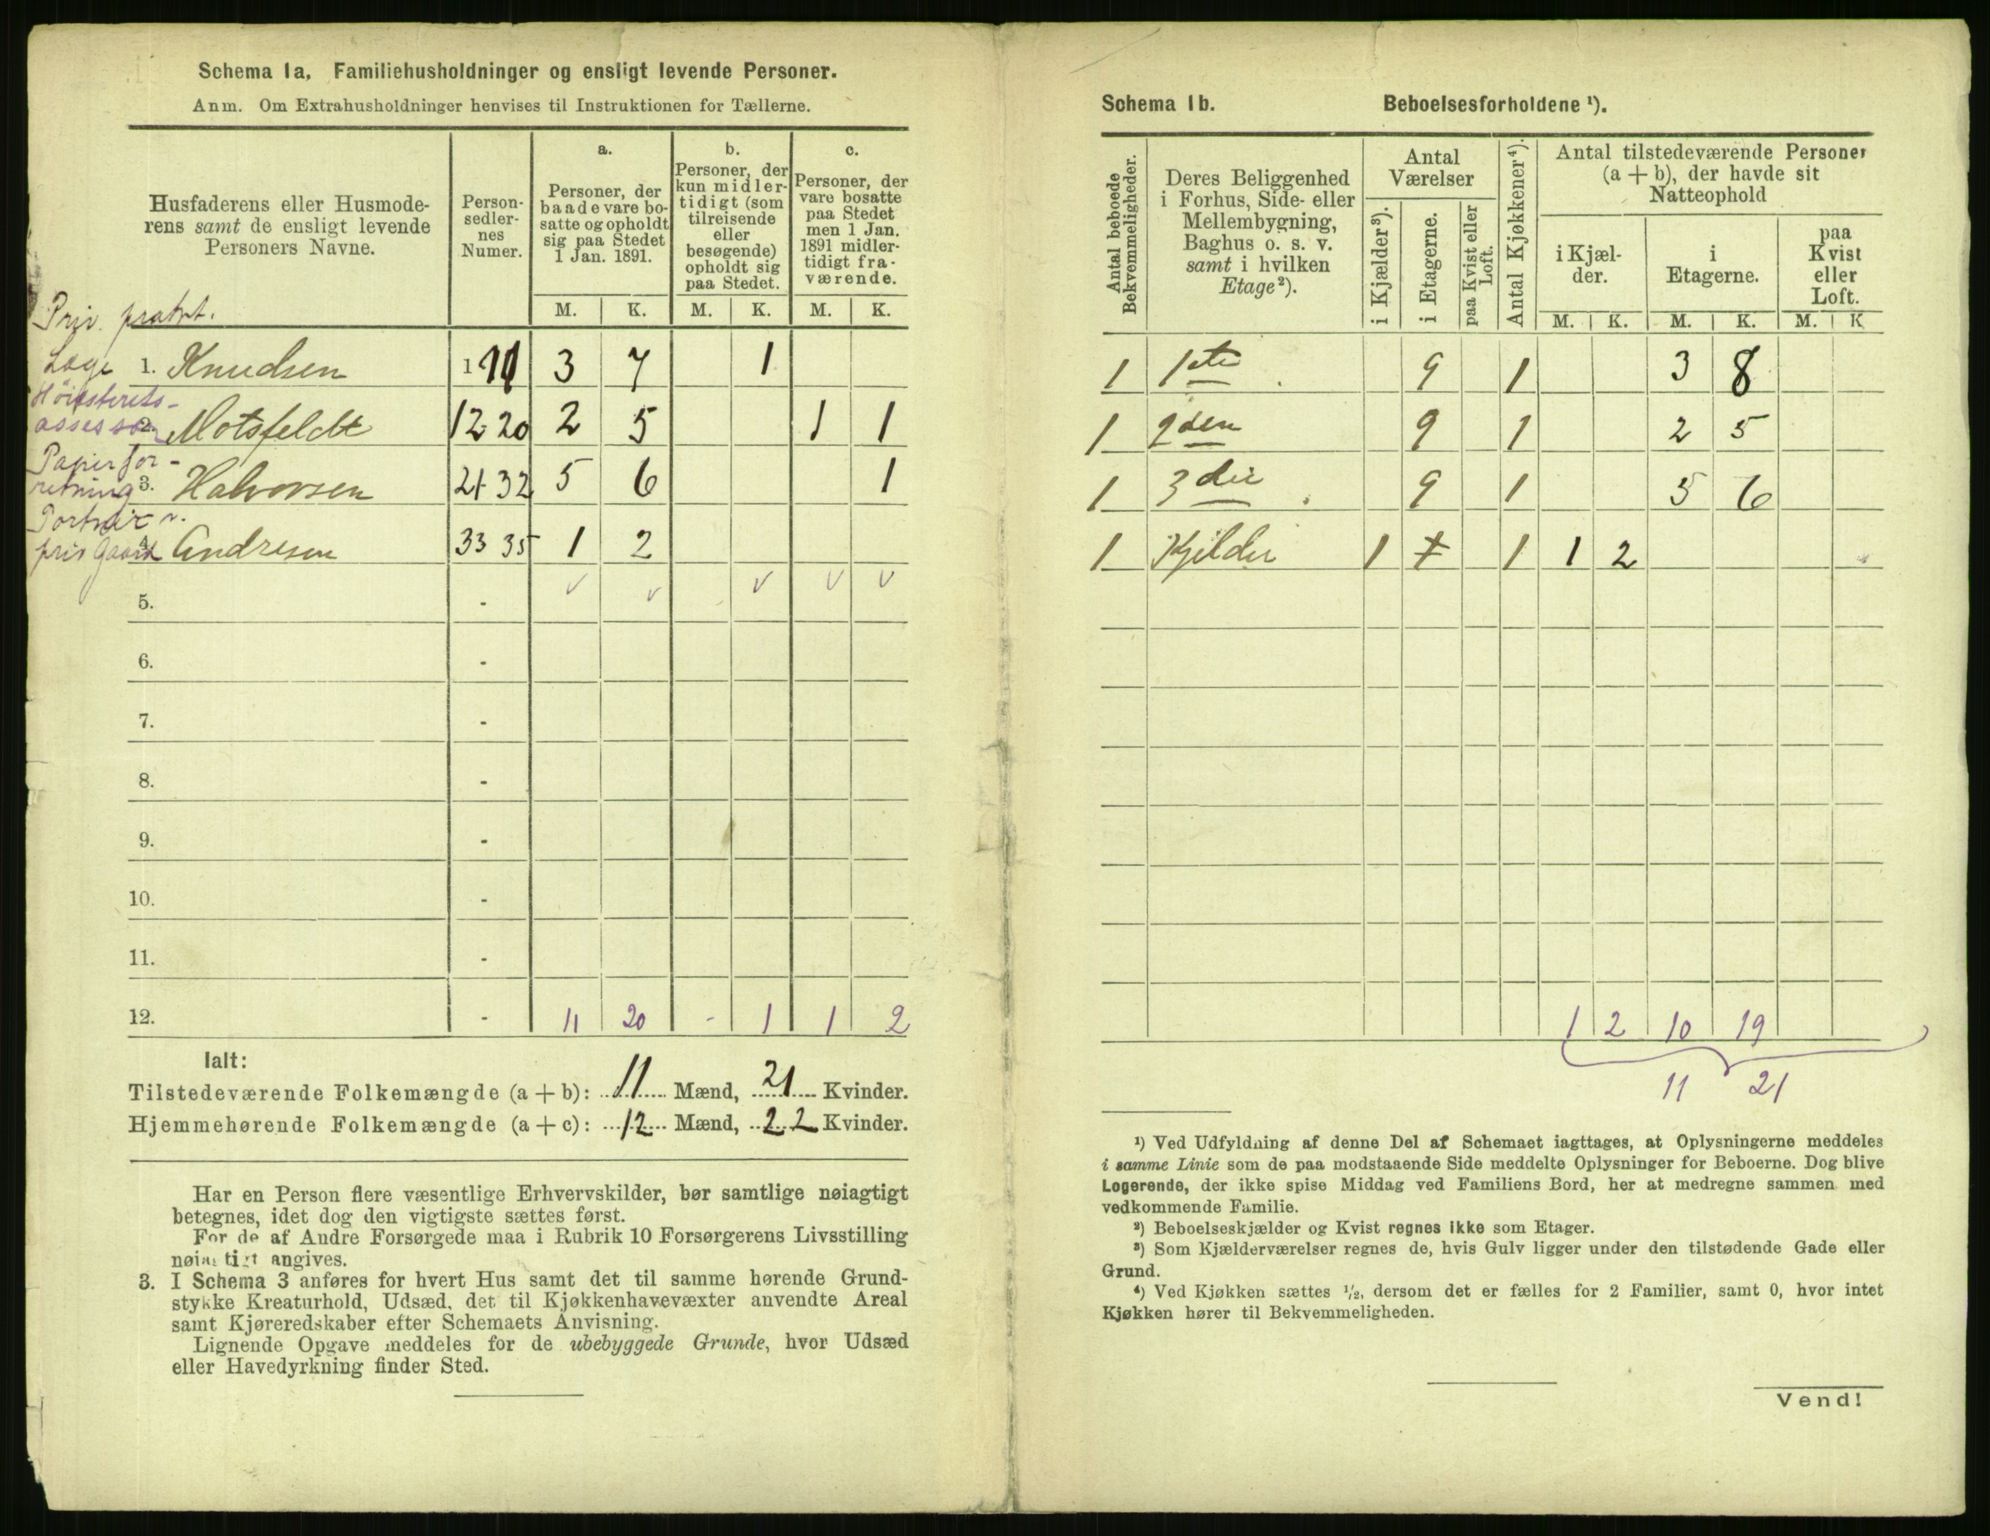 Schema 1a. Familiehusholdninger og ensligt levende Personer.
Anm. Om Extrahusholdninger henvises til Instruktionen for Tællerne.
Husfaderens eller Husmoderens samt de ensligt levende Personers Navne.
Person-sedlernes Numer.
a.
Personer, der baade vare bosatte og opholdt sig paa Stedet 1 Jan. 1891.
b.
Personer, der kun midlertidigt (som tilreisende eller besøgende) opholdt sig paa Stedet.
c.
Personer, der vare bosatte paa Stedet men 1 Jan. 1891 midlertidigt fraværende.
M. K. M. K. M. K.
Priv. prakt.
Læge 1. Knudsen 1 11 3 7 1
Høiesterets-
assessor 2. Motsfeldt 12 20 2 5 1 1
Papirfor-
retning 3. Halvorsen 21 32 5 6 1
Portnir v.
priv Gaard 4. Andresen 33 35 1 2
5. -
6. -
7. -
8. -
9. -
10. -
11. -
12. - 11 20 - 1 1 2
Ialt:
Tilstedeværende Folkemængde (a + b): 11 Mænd, 21 Kvinder.
Hjemmehørende Folkemængde (a + c): 12 Mænd, 22 Kvinder.
Har en Person flere væsentlige Erhvervskilder, bør samtlige nøiagtigt
betegnes, idet dog den vigtigste sættes først.
For de af Andre Forsørgede maa i Rubrik 10 Forsørgerens Livsstilling
nøiagtigt angives.
3. I Schema 3 anføres for hvert Hus samt det til samme hørende Grund-
stykke Kreaturhold, Udsæd, det til Kjøkkenhavevæxter anvendte Areal
samt Kjøreredskaber efter Schemaets Anvisning.
Lignende Opgave meddeles for de ubebyggede Grunde, hvor Udsæd
eller Havedyrkning finder Sted.
Schema 1b. Beboelsesforholdene ¹).
Antal beboede Bekvemmeligheder.
Deres Beliggenhed i Forhus, Side- eller Mellembygning, Baghus o. s. v. samt i hvilken Etage²).
Antal Værelser
i Kjælder³).
i Etagerne.
paa Kvist eller Loft.
Antal Kjøkkener⁴).
Antal tilstedeværende Personer (a + b), der havde sit Natteophold
i Kjælder.
i Etagerne.
paa Kvist eller Loft.
M. K. M. K. M. K
1 1ste 9 1 3 8
1 2den 9 1 2 5
1 3die 9 1 5 6
1 Kjelder 1 1 1 2
1 2 10 19
11 21
¹) Ved Udfyldning af denne Del af Schemaet iagttages, at Oplysningerne meddeles
i samme Linie som de paa modstaaende Side meddelte Oplysninger for Beboerne. Dog blive
Logerende, der ikke spise Middag ved Familiens Bord, her at medregne sammen med
vedkommende Familie.
²) Beboelseskjælder og Kvist regnes ikke som Etager.
³) Som Kjælderværelser regnes de, hvis Gulv ligger under den tilstødende Gade eller
Grund.
⁴) Ved Kjøkken sættes ¹/₂, dersom det er fælles for 2 Familier, samt 0, hvor intet
Kjøkken hører til Bekvemmeligheden.
Vend!